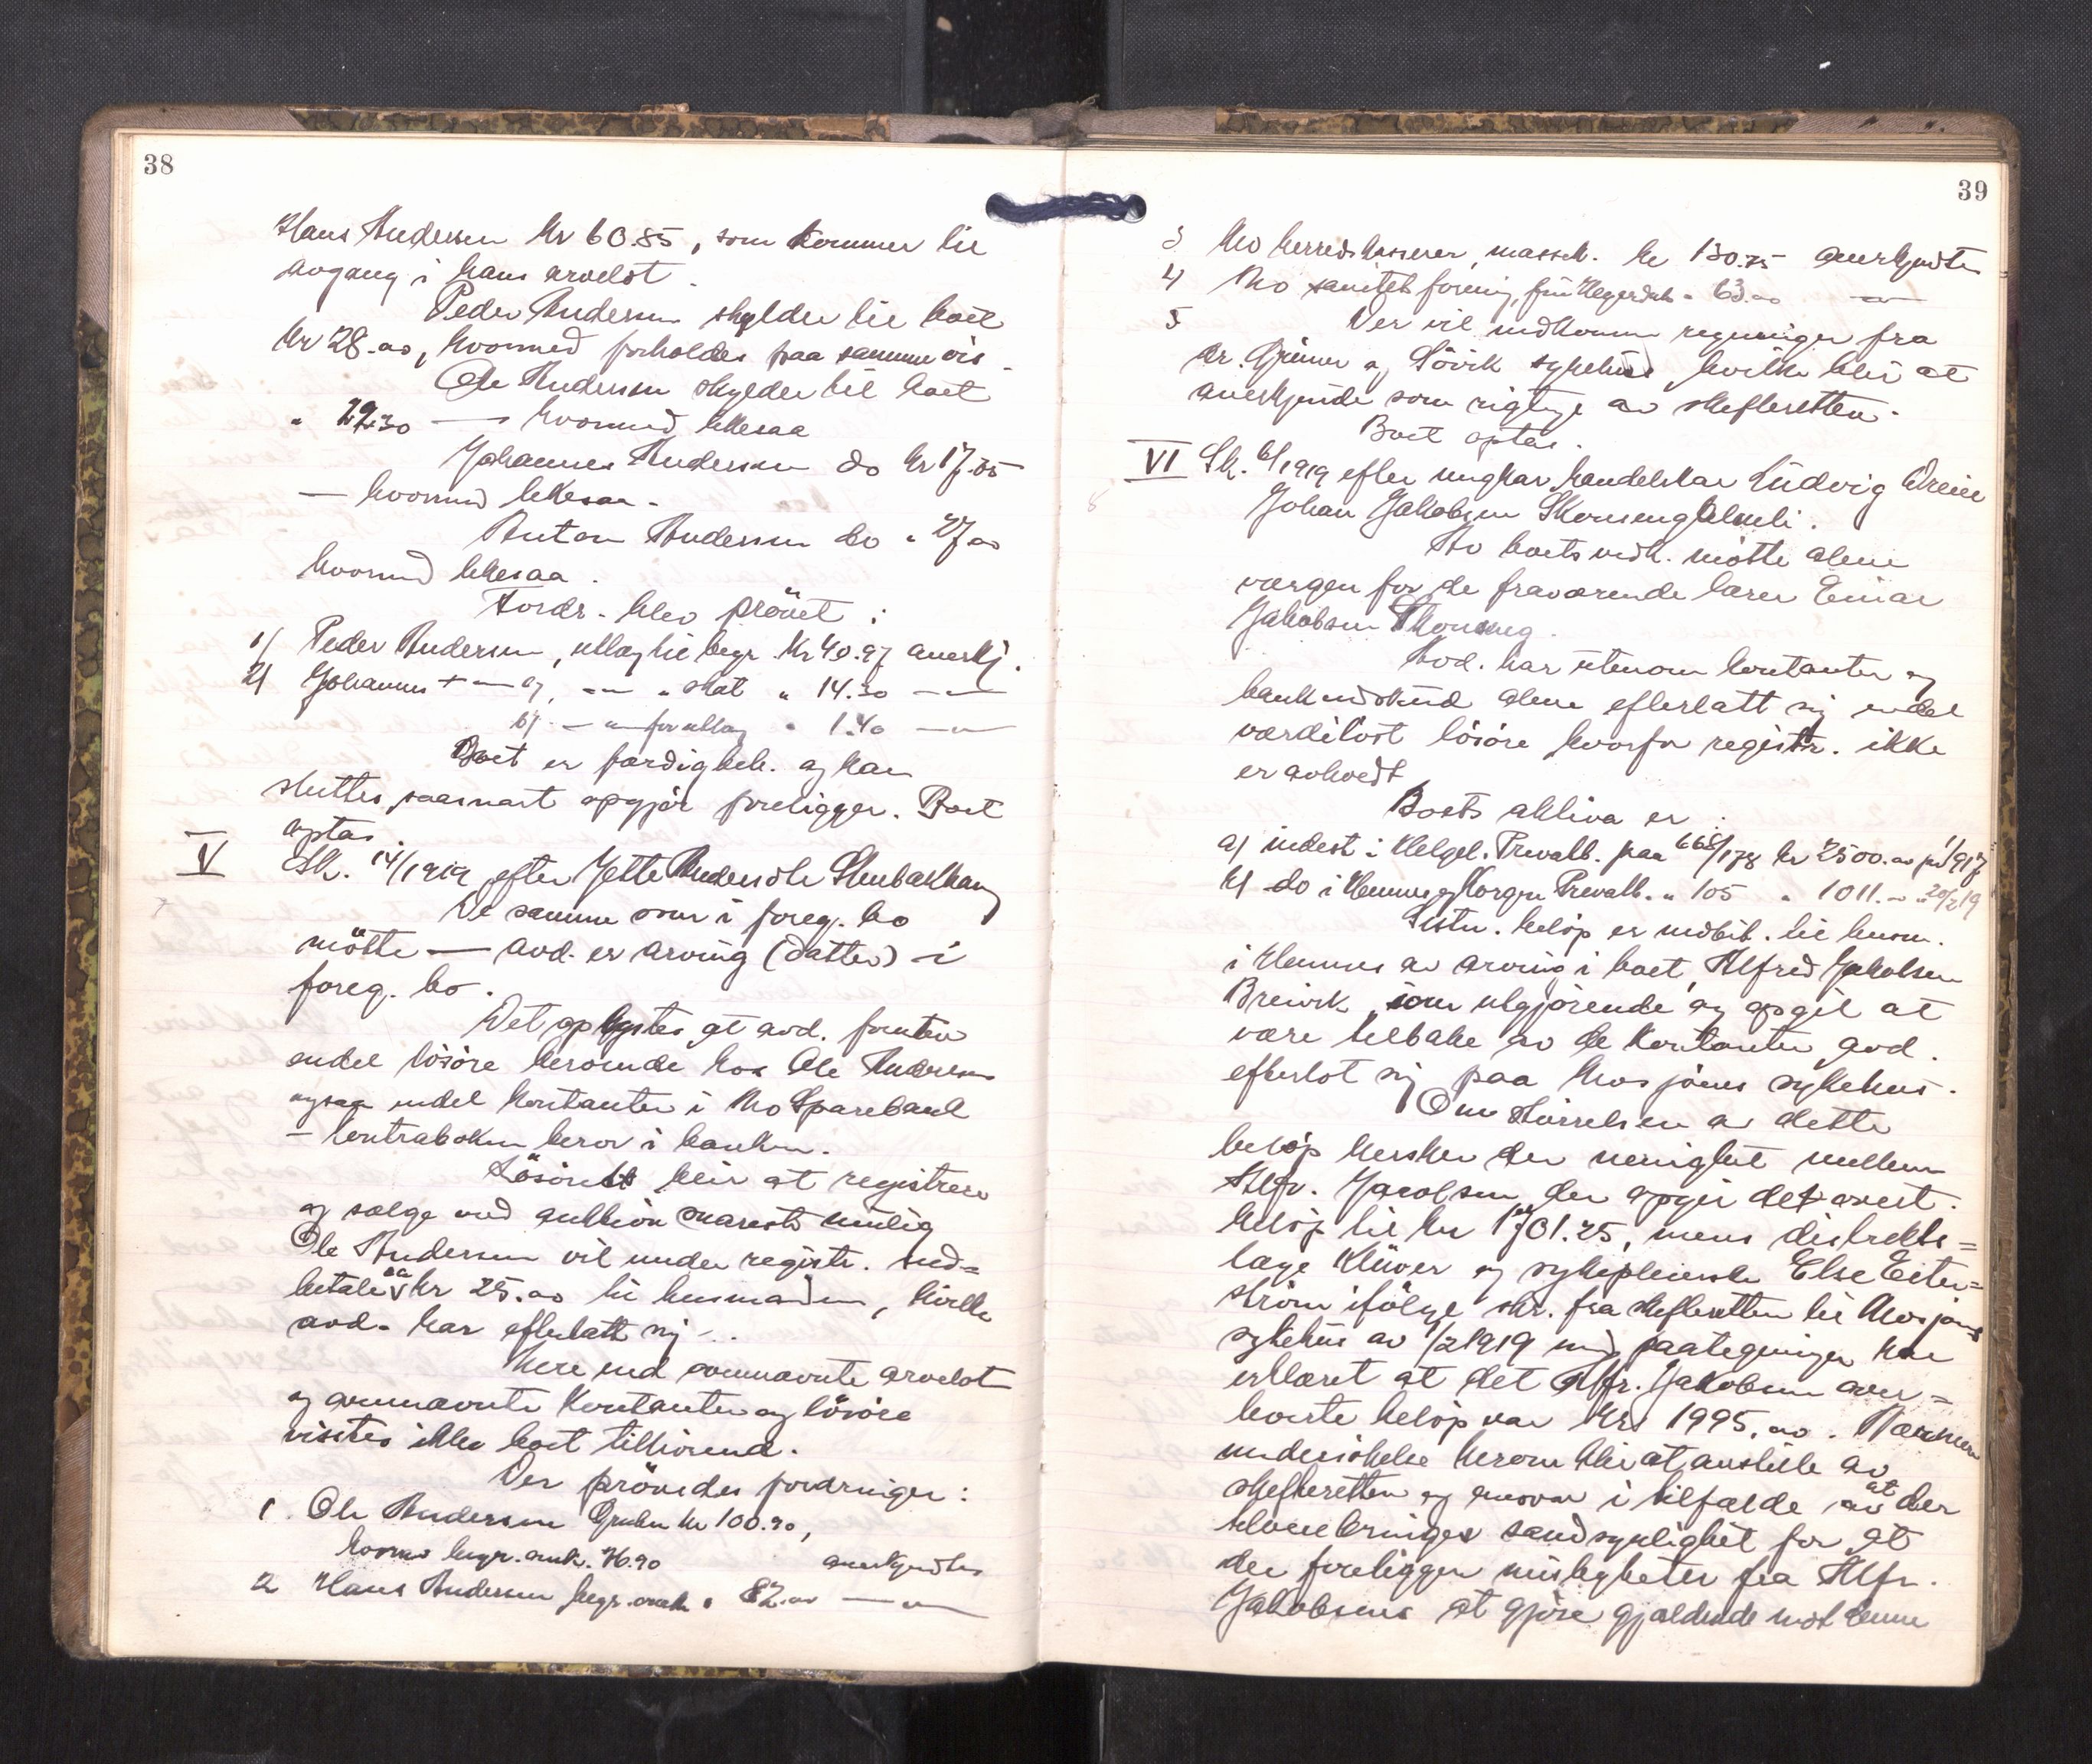 38
Hans Andersen kr 60.85, som kommer til
avgang i hans arvelot.
Peder Andersen skylder til boet
kr 28.00, hvormed forholdes paa samme vis.
Ole Andersen skylder til boet
" 29.30 — hvormed likesaa
Johannes Andersen do kr 17.05
— hvormed likesaa.
Anton Andersen do " 27.00
hvormed likesaa.
Fordr. blev prövet:
1/ Peder Andersen, utlæg til begr. kr 40.97 anerkj.
2/ Johannes —"— a/ —"— " skat " 14.30 —"—
b/ —"— for utlæg " 1.40 —"—
Boet er færdigbeh. og kan
sluttes, saasnart opgjör foreligger. Boet
optas.
V Sk. 14/1919 efter Jette Andersdtr
De samme som i foreg. bo
mötte — avd. er arving (datter) i
foreg. bo.
Det oplystes at avd. foruten
endel lösöre beroende hos Ole Andersen
ogsaa endel kontanter i Mo Sparebank
— kontraboken beror i banken.
Lösöret blir at registrere
og sælge ved auktion snarest mulig
Ole Andersen vil under registr. ind=
betale kr 25.00 til husmanden, hvilke
avd. har efterlatt sig.
Mere end ovennævnte arvelot
og ovennævnte kontanter og lösöre
visstes ikke boet tilhörende.
Der prövedes fordringer:
1. Ole Andersen Gruben kr 100.90,
hvorav begr. omk. 76.90 anerkjendtes
2 Hans Andersen begr. omk. " 82.00 —"—
39
3 Mo herredskasserer, massek. kr 130.75 anerkjendtes
4/ Mo sanitetsforening, " 63.00 —"—
5 Der vil indkomme regninger fra
dr. og Sövik sykehus, hvilke blir at
anerkjende som rigtige av skifteretten.
Boet optas.
VI Sk. 6/1919 efter ungkar handelskar Ludvig
Johan Jakobsen
Av boets vedk. mötte alene
værgen for de fraværende lærer Einar
Jakobsen
Avd. har utenom kontanter og
bankindskud alene efterlatt sig endel
værdilöst lösöre hvorfor registr. ikke
er avholdt.
Boets aktiva er:
a/ indest. i Helgel. Privatb. paa 668/178 kr 2500.00 pr 1/1 1917
b/ do i Hemnes og Korgen Privatb. " 105 " 1011.— " 20/2 19
Sistn. belöp er indbet. til lensm.
i Hemnes av arving i boet, Alfred Jakobsen
Breivik, som utgjörende og opgit at
være tilbake av de kontanter avd.
efterlot sig paa Mosjöens sykehus.
Om störrelsen av dette
belöp hersker der uenighet mellem
Alfr. Jacobsen, der opgir det overt.
belöp til kr 1701.25, mens distrikts=
læge Klüver og sykepleierske Else Eiter=
ström ifölge skr. fra skifteretten til Mosjöens
sykehus av 1/2 1919 med paategninger har
erklæret at det Alfr. Jakobsen over=
leverte belöp var kr 1995.00. Nærmere
undersökelse herom blir at anstille av
skifteretten og ansvar i tilfælde at der
tilveiebringes sandsynlighet for at
der foreligger misligheter fra Alfr.
Jakobsens at gjöre gjældende mot denne